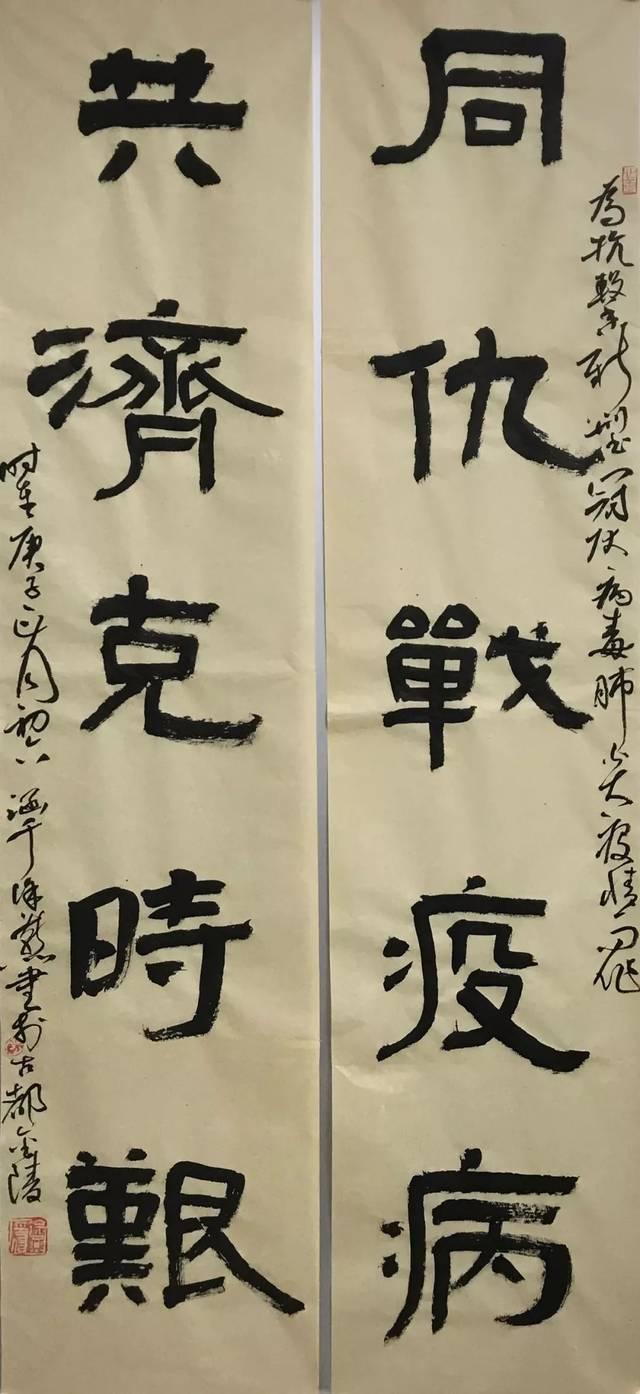 同仇戰疫病
為抗擊新型冠状病毒肺炎疫情而作
共濟克時艱
时在庚子正月初六
書於古都金陵